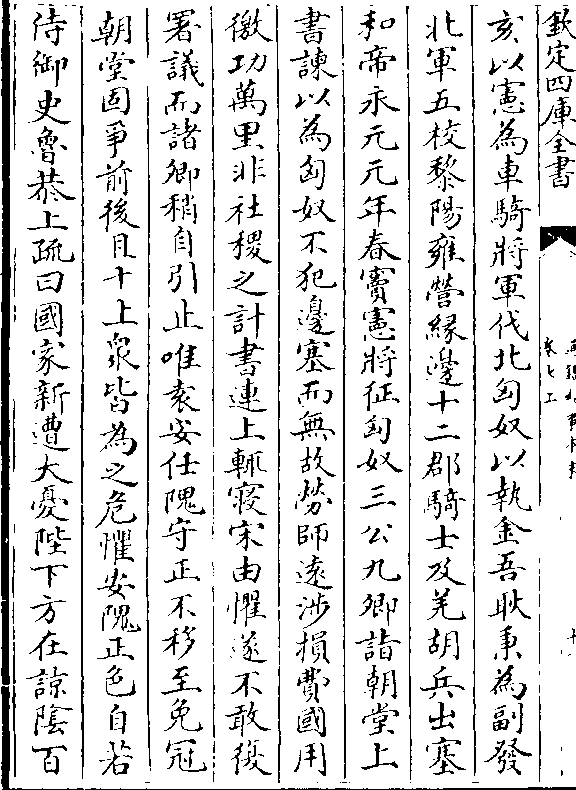 欽定四庫全書
亥以憲為車騎將軍伐北匈奴以執金吾耿秉為副發
北軍五校黎陽雍營緣邊十二郡騎士及羌胡兵出塞
和帝永元元年春竇憲將征匈奴三公九卿詣朝堂上
書諫以為匈奴不犯邊塞而無故勞師遠涉損費國用
徼功萬里非社稷之計書連上輒寢宋由懼遂不敢復
署議而諸卿稍自引止唯袁安任隗守正不移至免冠
朝堂固爭前後且十上衆皆為之危懼安隗正色自若
侍御史魯恭上疏曰國家新遭大憂陛下方在諒陰百